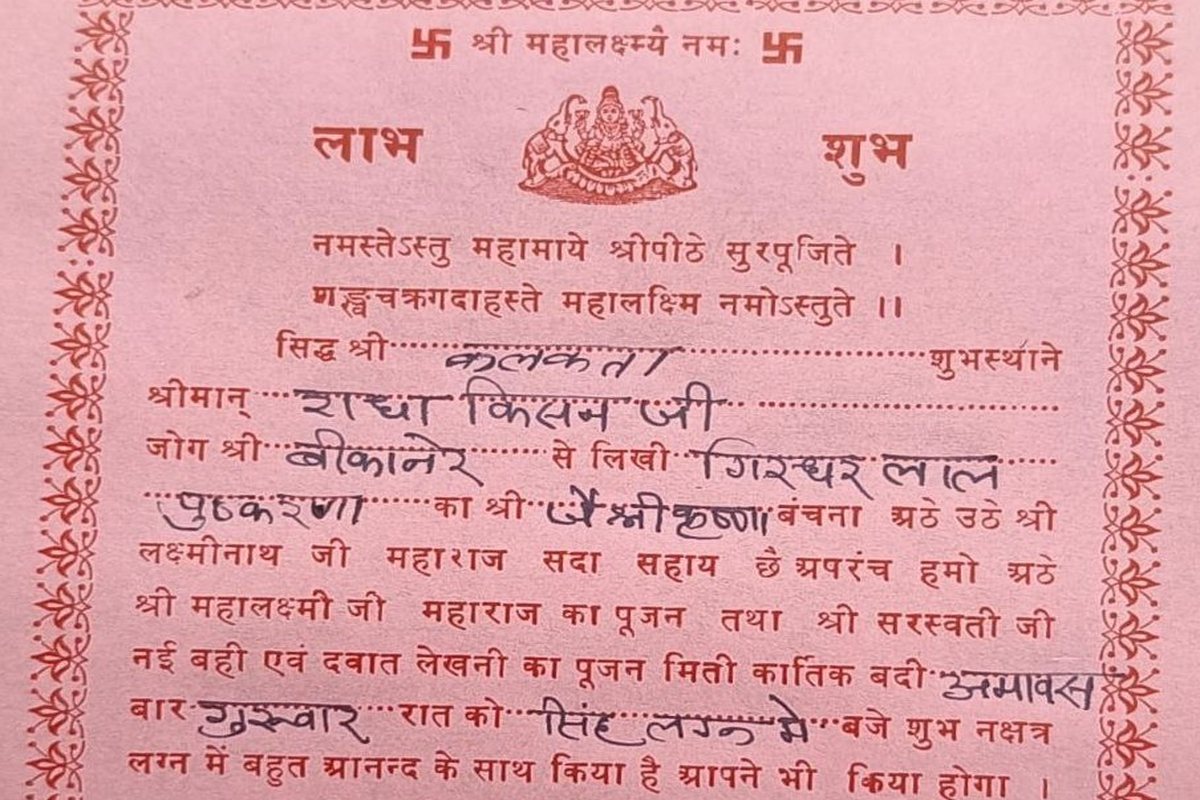 卐 श्री महालक्ष्म्यै नमः 卐
लाभ शुभ
नमस्तेऽस्तु महामाये श्रीपीठे सुरपूजिते ।
शङ्खचक्रगदाहस्ते महालक्ष्मि नमोऽस्तुते ।।
सिद्ध श्री कलकता शुभस्थाने
श्रीमान् राधा किसन जी
जोग श्री बीकानेर से लिखी गिरधर लाल
पुष्करणा का श्री जैश्रीकृष्णा बंचना अठे उठे श्री
लक्ष्मीनाथ जी महाराज सदा सहाय छै अपरंच हमो अठे
श्री महालक्ष्मी जी महाराज का पूजन तथा श्री सरस्वती जी
नई बही एवं दवात लेखनी का पूजन मिती कार्तिक बदी अमावस
बार गुरुवार रात को सिंह लग्न मे बजे शुभ नक्षत्र
लग्न में बहुत आनन्द के साथ किया है आपने भी किया होगा ।